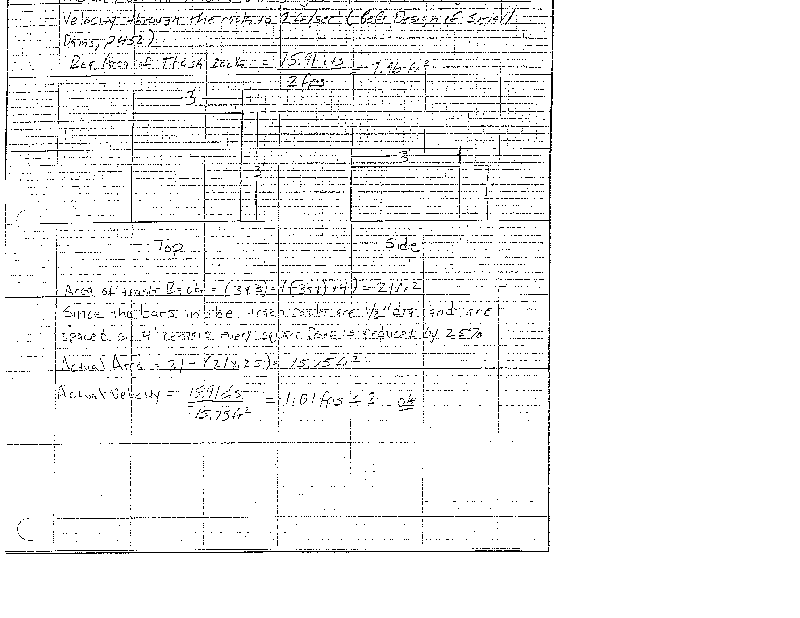 Velocity through the rack is 2 ft/sec ( Ref: Design of Small
Dams, p452)
Req Area of Trash Racks = 15.91 cfs / 2 fps = 7.96 ft²
3
3
3
Top Side
Area of trash Rack = (3x3)+ = 21 ft²
Since the bars in the trash rack are 1/2" dia. and are
spaced at 4" every square is reduced by 25%
Actual Area = 21 - (21x.25) = 15.75 ft²
Actual Velocity = 15.91 cfs / 15.75 ft² = 1.01 fps < 2 ok